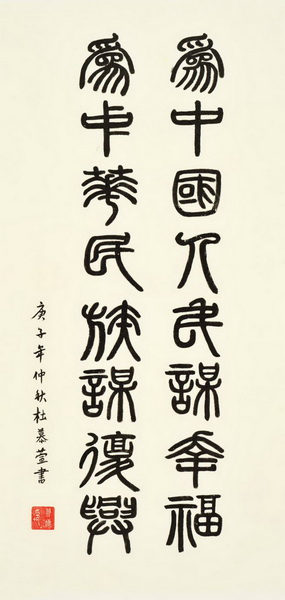 爲中國人民謀幸福
爲中華民族謀復興
庚子年仲秋杜慕萱書